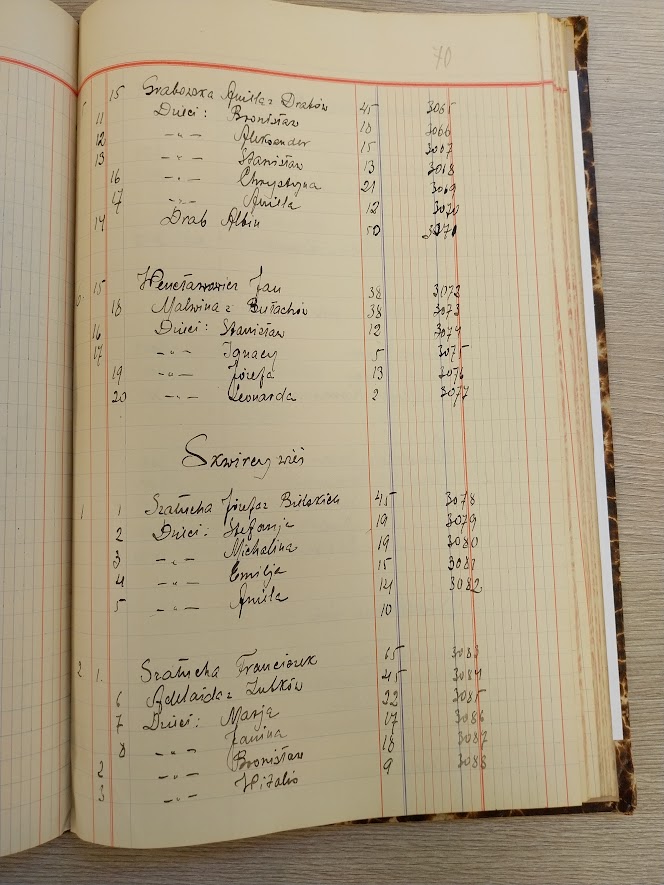 70
15 Grabowska Aniela z Drabów 45 3065
11 Dzieci: Bronisław 18 3066
12 -"- Aleksander 15 3067
13 -"- Stanisław 13 3068
16 -"- Chrystyna 21 3069
17 -"- Aniela 12 3070
14 Drab Albin 50 3071
15 Wencławowicz Jan 38 3072
18 Malwina z 38 3073
16 Dzieci: Stanisław 12 3074
17 -"- Ignacy 5 3075
19 -"- Józefa 13 3076
20 -"- Leonarda 2 3077
Skwircy wieś
1 1 Szałucha Józefa z Bilskich 45 3078
2 Dzieci: Stefanja 19 3079
3 -"- Michalina 19 3080
4 -"- Emilja 15 3081
5 -"- Aniela 14 3082
10
2 1. Szałucha Franciszek 65 3083
6 Adelaida z Zubków 45 3084
7 Dzieci: Marja 22 3085
8 -"- Janina 17 3086
2 -"- Bronisław 18 3087
3 -"- Witalis 9 3088